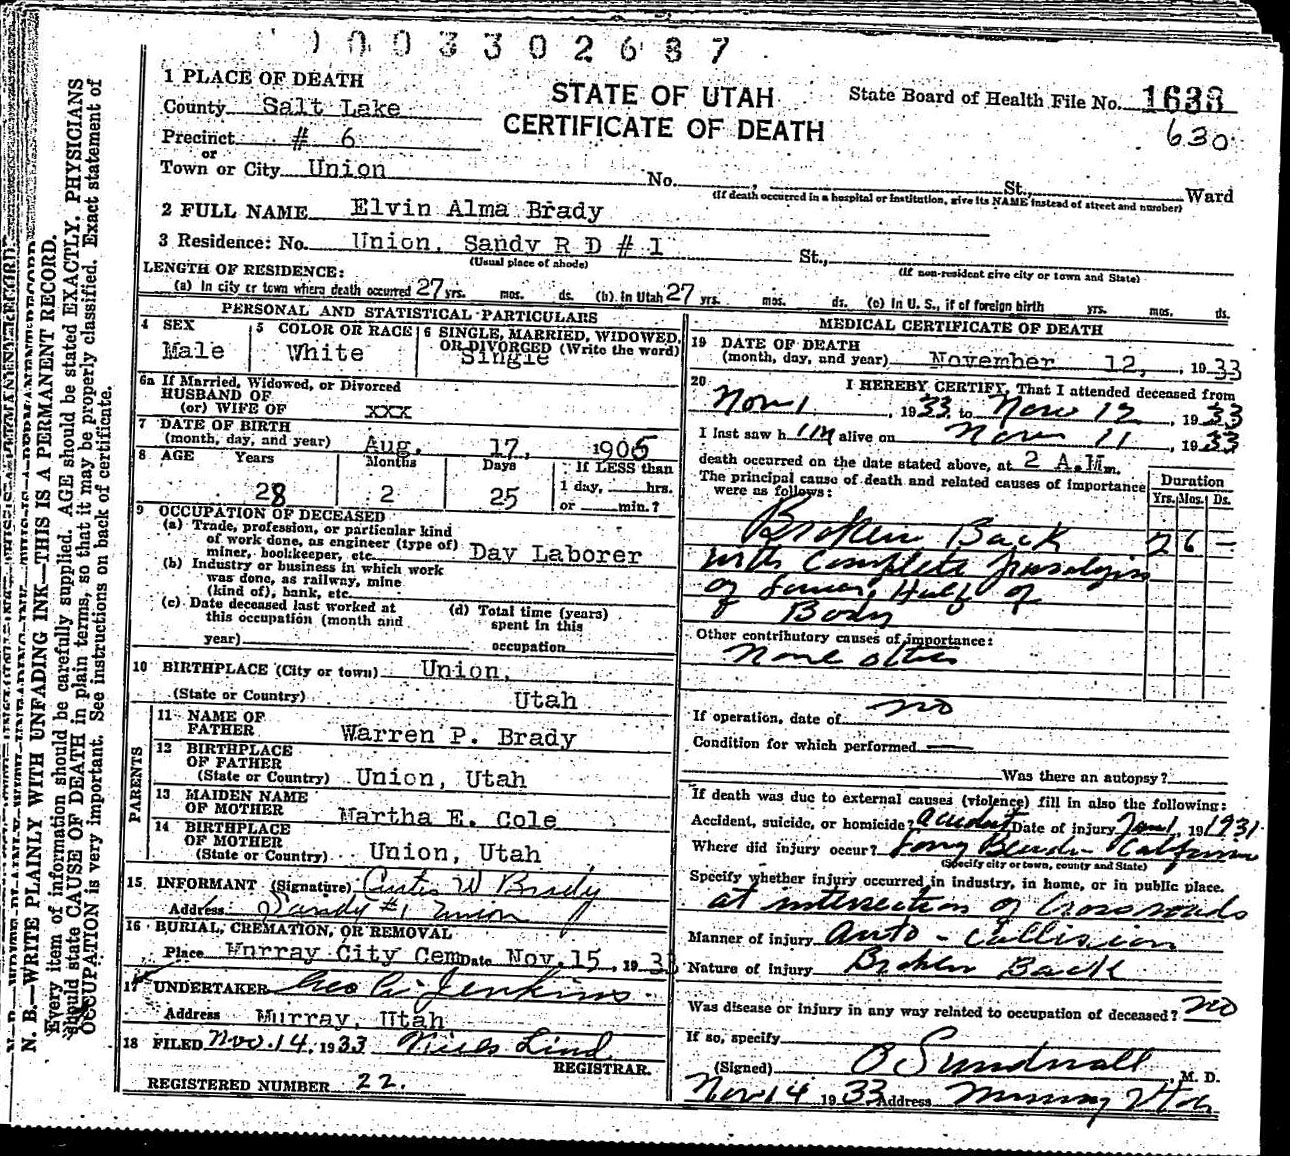 0003302687
1 PLACE OF DEATH
County Salt Lake
Precinct # 6
or
Town or City Union No. , St., Ward
STATE OF UTAH
CERTIFICATE OF DEATH
State Board of Health File No. 1633
630
(If death occurred in a hospital or institution, give its NAME instead of street and number)
2 FULL NAME Elvin Alma Brady
3 Residence: No. Union, Sandy R D # 1 St.,
(Usual place of abode) (If non-resident give city or town and State)
LENGTH OF RESIDENCE:
(a) In city or town where death occurred 27 yrs. mos. ds. (b) In Utah 27 yrs. mos. ds. (c) In U. S., if of foreign birth yrs. mos. ds.
PERSONAL AND STATISTICAL PARTICULARS
4 SEX
Male
5 COLOR OR RACE
White
6 SINGLE, MARRIED, WIDOWED, OR DIVORCED (Write the word)
Single
6a If Married, Widowed, or Divorced
HUSBAND OF
(or) WIFE OF xxx
7 DATE OF BIRTH
(month, day, and year) Aug. 17, 1905
8 AGE Years Months Days If LESS than
28 2 25 1 day, hrs.
or min.?
9 OCCUPATION OF DECEASED
(a) Trade, profession, or particular kind
of work done, as engineer (type of)
miner, bookkeeper, etc. Day Laborer
(b) Industry or business in which work
was done, as railway, mine
(kind of), bank, etc.
(c) Date deceased last worked at
this occupation (month and
year)
(d) Total time (years)
spent in this
occupation
10 BIRTHPLACE (City or town) Union,
(State or Country) Utah
PARENTS
11 NAME OF
FATHER Warren P. Brady
12 BIRTHPLACE
OF FATHER
(State or Country) Union, Utah
13 MAIDEN NAME
OF MOTHER Martha E. Cole
14 BIRTHPLACE
OF MOTHER
(State or Country) Union, Utah
15 INFORMANT (Signature) Curtis W Brady
Address Sandy #1 Union
16 BURIAL, CREMATION, OR REMOVAL
Place Murray City Cem Date Nov. 15, 1933
17 UNDERTAKER Geo A. Jenkins
Address Murray, Utah
18 FILED Nov. 14, 1933 Niels Lind
REGISTRAR.
REGISTERED NUMBER 22.
MEDICAL CERTIFICATE OF DEATH
19 DATE OF DEATH
(month, day, and year) November 12, , 1933
20 I HEREBY CERTIFY, That I attended deceased from
Nov 1 , 1933 to Nov 12 , 1933
I last saw h im alive on Nov 11 , 1933
death occurred on the date stated above, at 2 A.M m.
The principal cause of death and related causes of importance
were as follows:
Duration
Yrs. Mos. Ds.
Broken Back 2 6 —
with Complete paralysis
of Lower Half of
Body
Other contributory causes of importance:
None other
If operation, date of no
Condition for which performed
Was there an autopsy?
If death was due to external causes (violence) fill in also the following:
Accident, suicide, or homicide? accident Date of injury , 19 1931
Where did injury occur? Long Beach California
(Specify city or town, county and State)
Specify whether injury occurred in industry, in home, or in public place.
at intersection of Crossroads
Manner of injury Auto - Collision
Nature of Injury Broken Back
Was disease or injury in any way related to occupation of deceased? no
If so, specify
(Signed) O Sundwall , M. D.
Nov 14 1933 Address Murray Utah
N. B.—WRITE PLAINLY WITH UNFADING INK—THIS IS A PERMANENT RECORD.
Every item of information should be carefully supplied. AGE should be stated EXACTLY. PHYSICIANS
should state CAUSE OF DEATH in plain terms, so that it may be properly classified. Exact statement of
OCCUPATION is very important. See instructions on back of certificate.